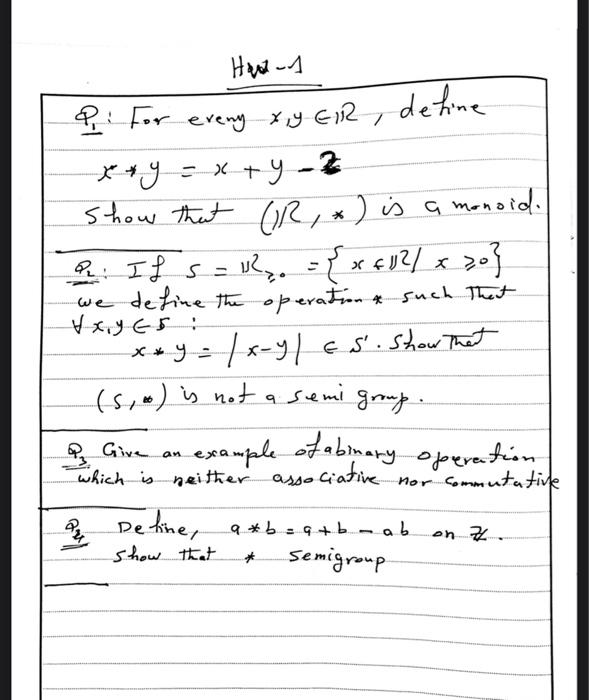 HW-1
Q1: For every x,y ∈ ℝ, define
x * y = x + y - 2
Show that (ℝ, *) is a monoid.
Q2: If S = ℝ≥0 = { x ∈ ℝ / x ≥ 0 }
we define the operation * such that
∀ x,y ∈ S :
x * y = |x-y| ∈ S. Show that
(S, *) is not a semi group.
Q3 Give an example of a binary operation
which is neither associative nor commutative
Q4 Define, a * b = a + b - ab on ℤ.
Show that * semigroup